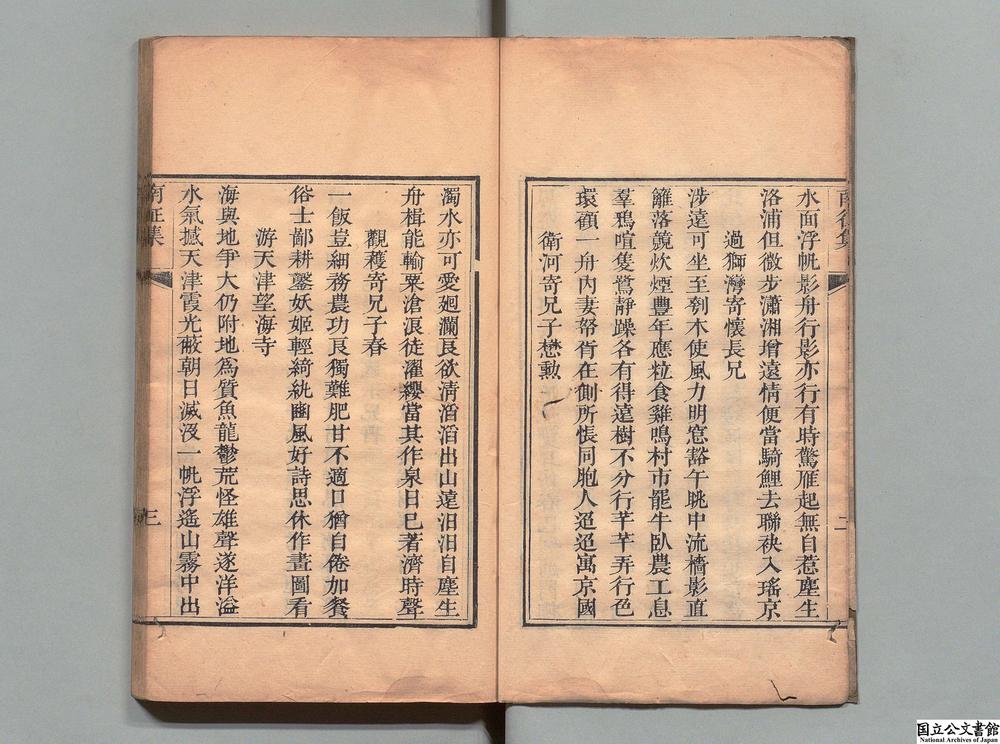 水面浮帆影舟行影亦行有時驚雁起無自惹塵生
洛浦但微步瀟湘增遠情便當騎鯉去聯袂入瑤京
過獅灣寄懷長兄
涉遠可坐至刳木使風力明窓豁午眺中流檣影直
籬落競炊煙豐年應粒食雞鳴村市罷牛臥農工息
羣鴉喧隻鷺靜躁各有得遠樹不分行芊芊弄行色
環顧一舟內妻帑肯在側所悵同胞人迢迢寓京國
衛河寄兄子懋勲
二
濁水亦可愛廻瀾良欲清滔滔出山遠汩汩自塵生
舟楫能輸粟滄浪徒濯纓當其作泉日已著濟時聲
觀穫寄兄子春
一飯豈細務農功良獨難肥甘不適口猶自倦加餐
俗士鄙耕鑿妖姬輕綺紈豳風好詩思休作畫圖看
游天津望海寺
海與地爭大仍附地爲質魚龍鬱荒怪雄聲遂洋溢
水氣撼天津霞光蔽朝日滅沒一帆浮遙山霧中出
南征集
三
国立公文書館
National Archives of Japan